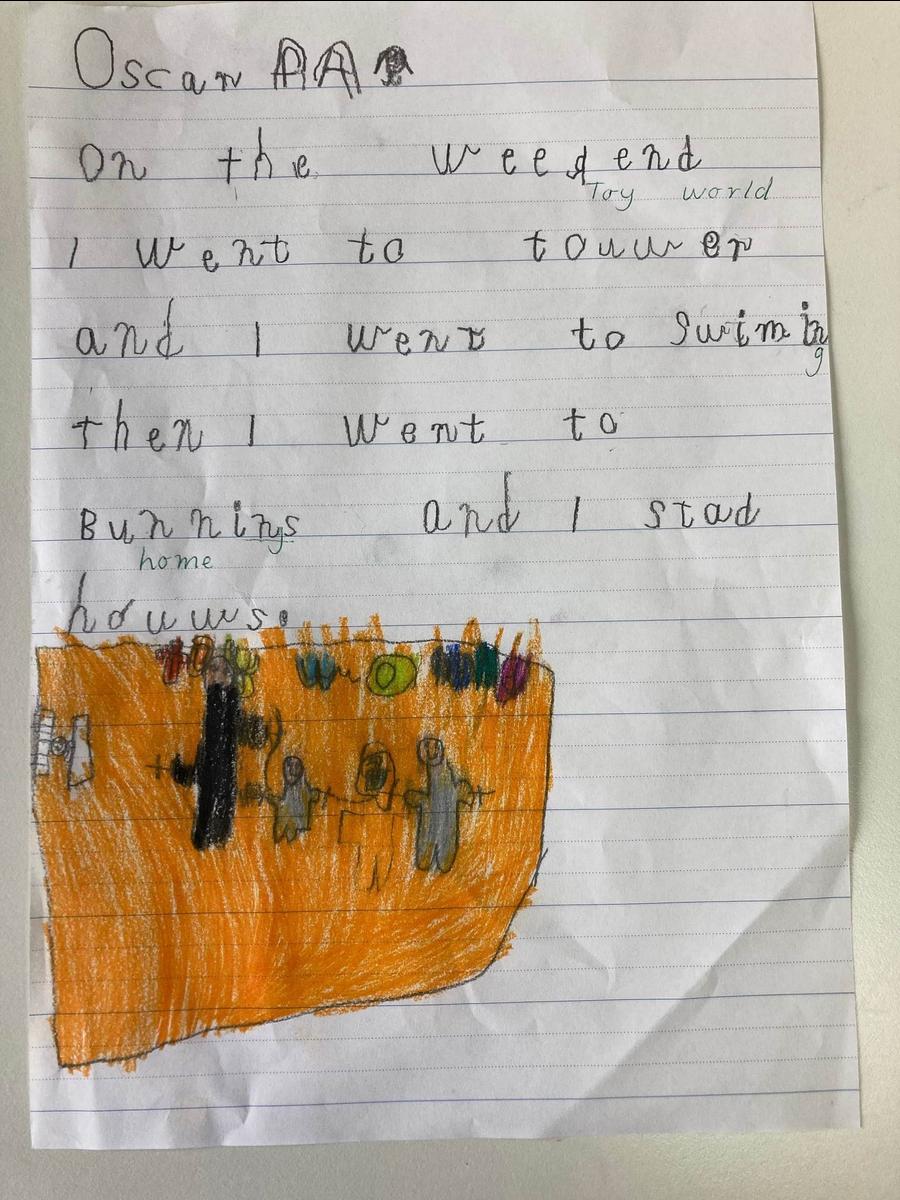 Oscar AAA
On the weekend
Toy world
I went to touwer
and I went to Swimin
g
then I went to
Bunnings and I stad
home
houws.